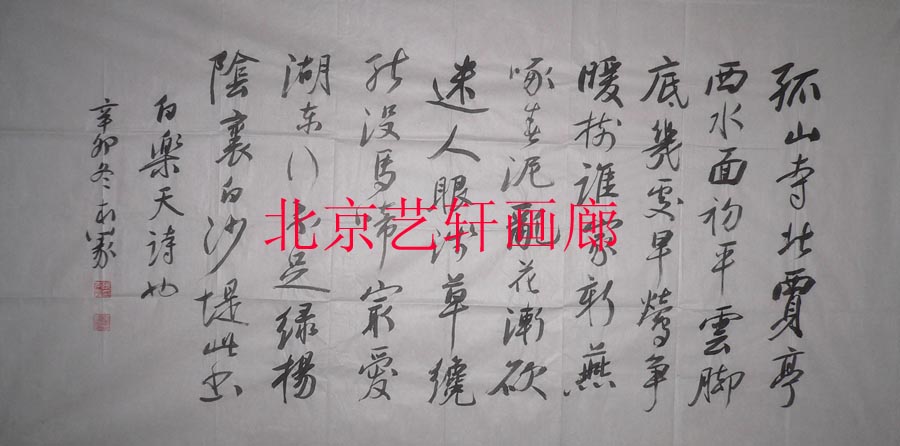 孤山寺北賈亭
西水面初平雲脚
底幾處早鶯争
暖樹誰家新燕
啄春泥亂花漸欲
迷人眼淺草纔
能没馬蹄最愛
湖東行不足緑楊
陰裏白沙堤此
白樂天詩
辛卯冬
北京艺轩画廊